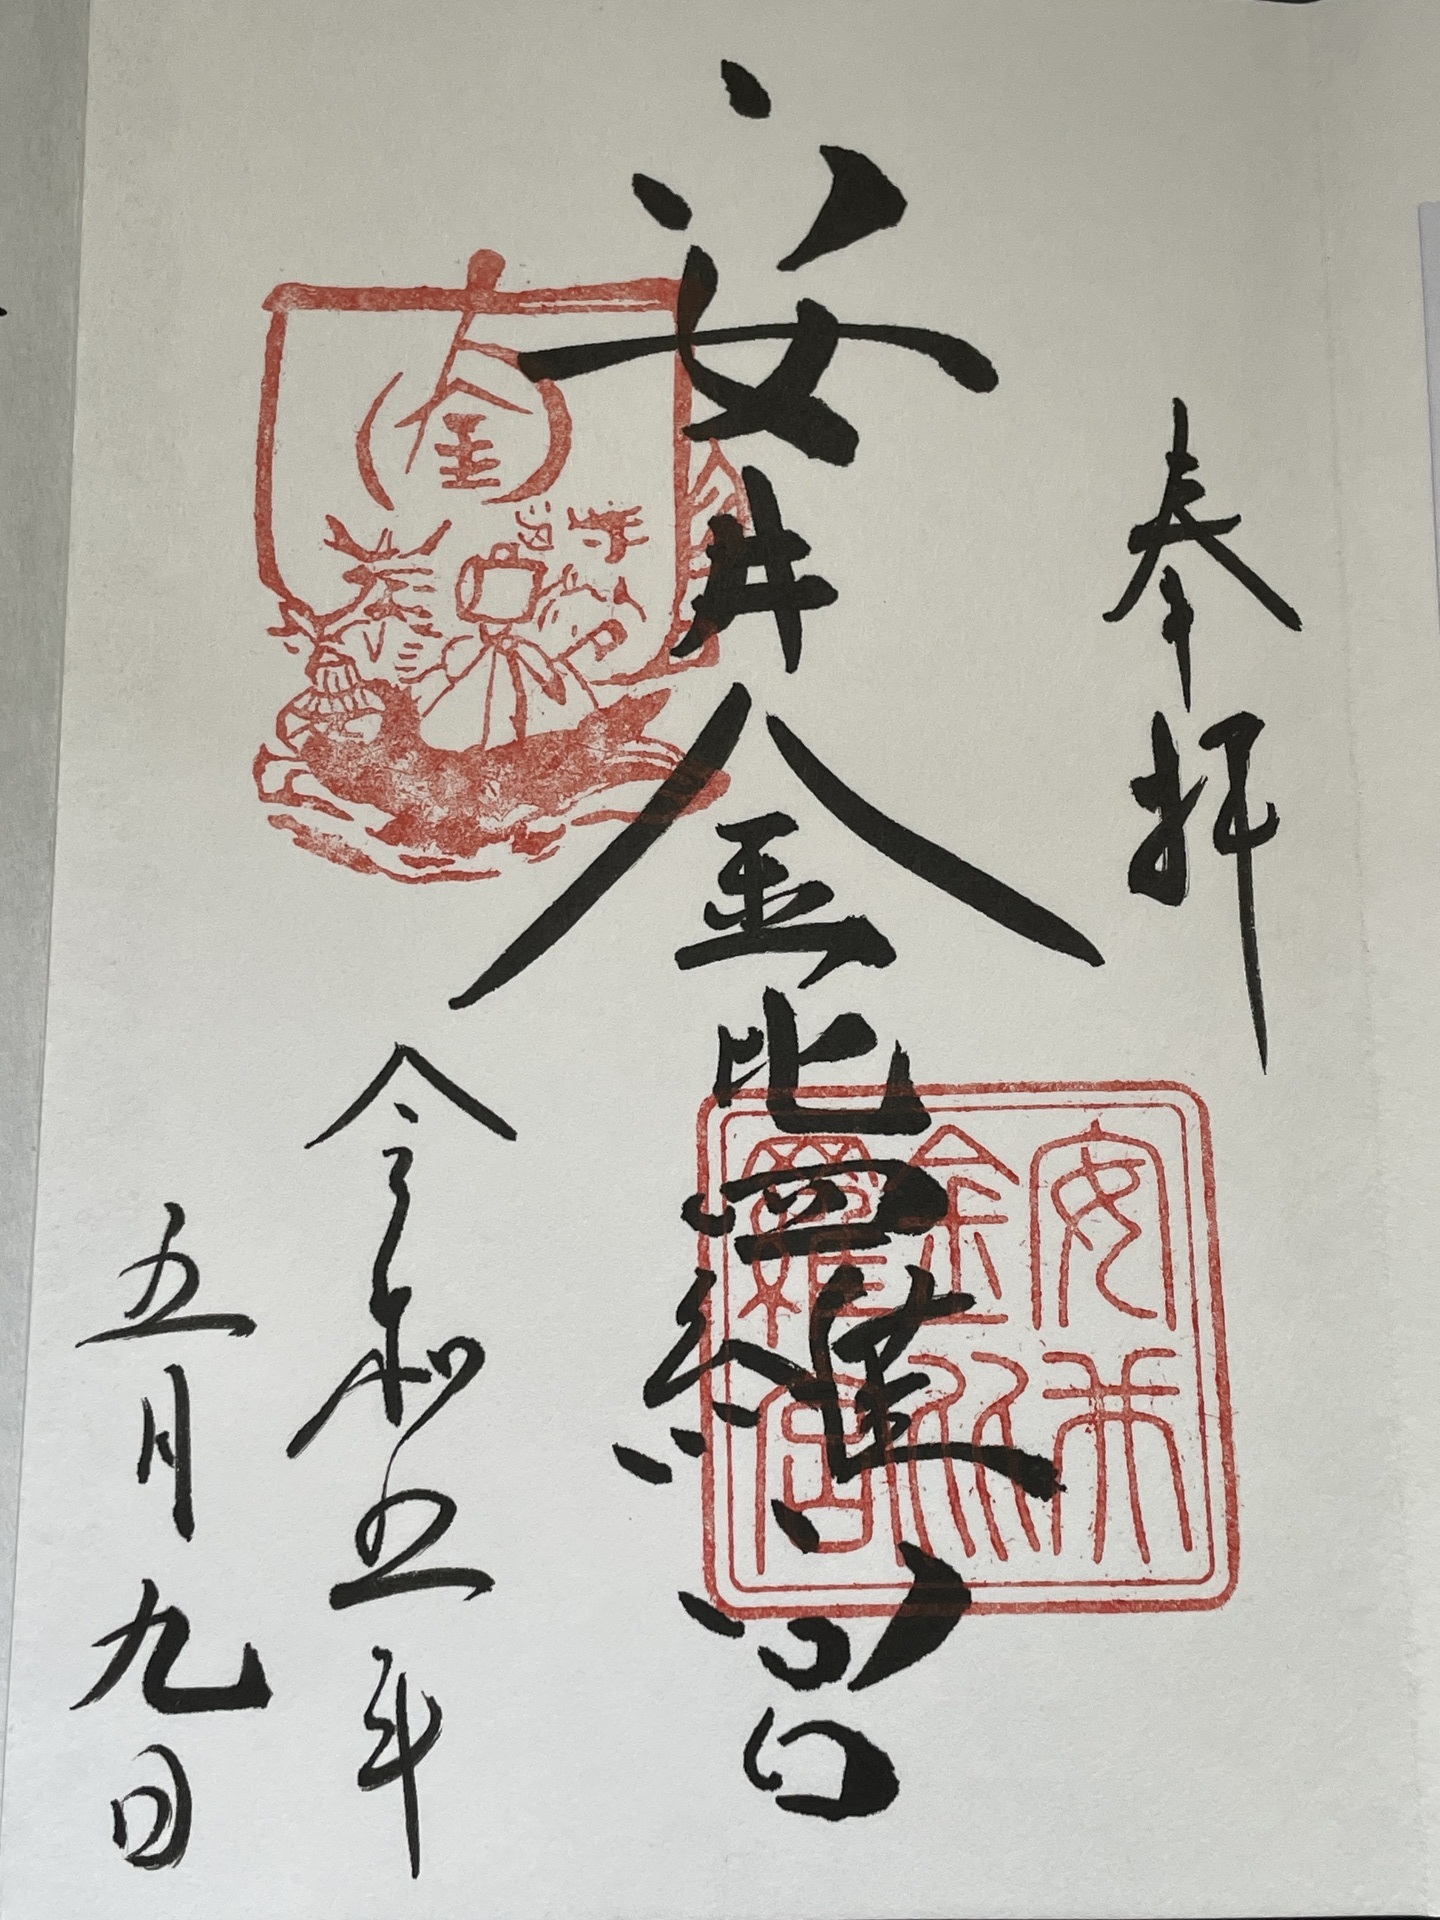 奉拝
安井金比羅宮
安井
金比
羅宮
金
令和五年
五月九日